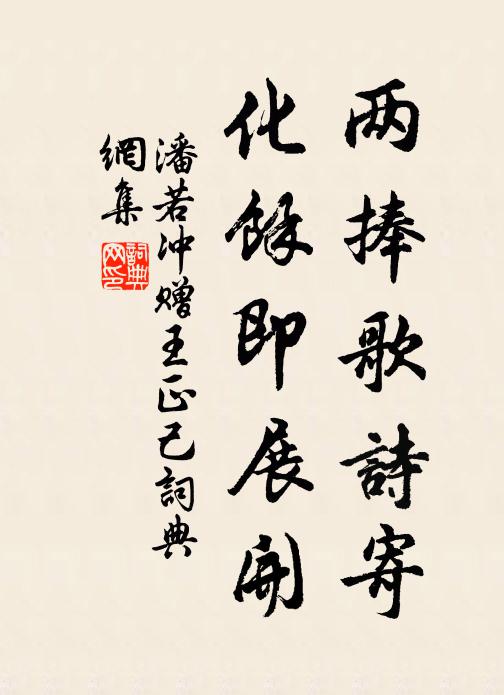 两捧歌詩寄
化餘即展開
潘若冲贈王正己詞典
網集
詞典网印